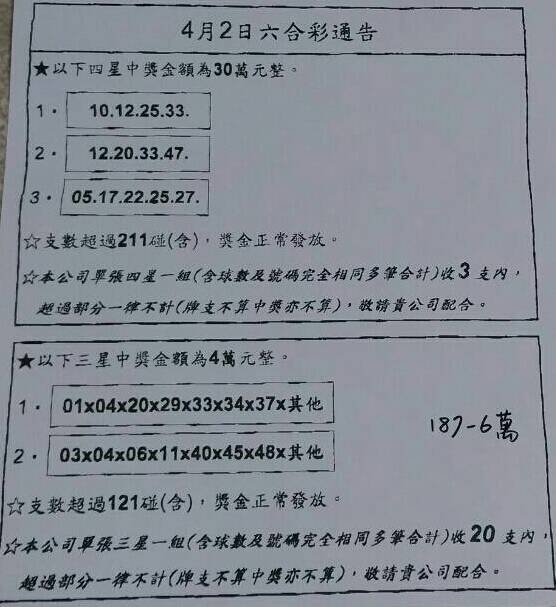 4月2日六合彩通告
★以下四星中獎金額為30萬元整。
1. 10.12.25.33.
2. 12.20.33.47.
3. 05.17.22.25.27.
☆支數超過211碰(含)，獎金正常發放。
☆本公司單張四星一組(含球數及號碼完全相同多筆合計)收3支內，
超過部分一律不計(牌支不算中獎亦不算)，敬請貴公司配合。
★以下三星中獎金額為4萬元整。
1. 01x04x20x29x33x34x37x其他
187-6萬
2. 03x04x06x11x40x45x48x其他
☆支數超過121碰(含)，獎金正常發放。
☆本公司單張三星一組(含球數及號碼完全相同多筆合計)收20支內，
超過部分一律不計(牌支不算中獎亦不算)，敬請貴公司配合。